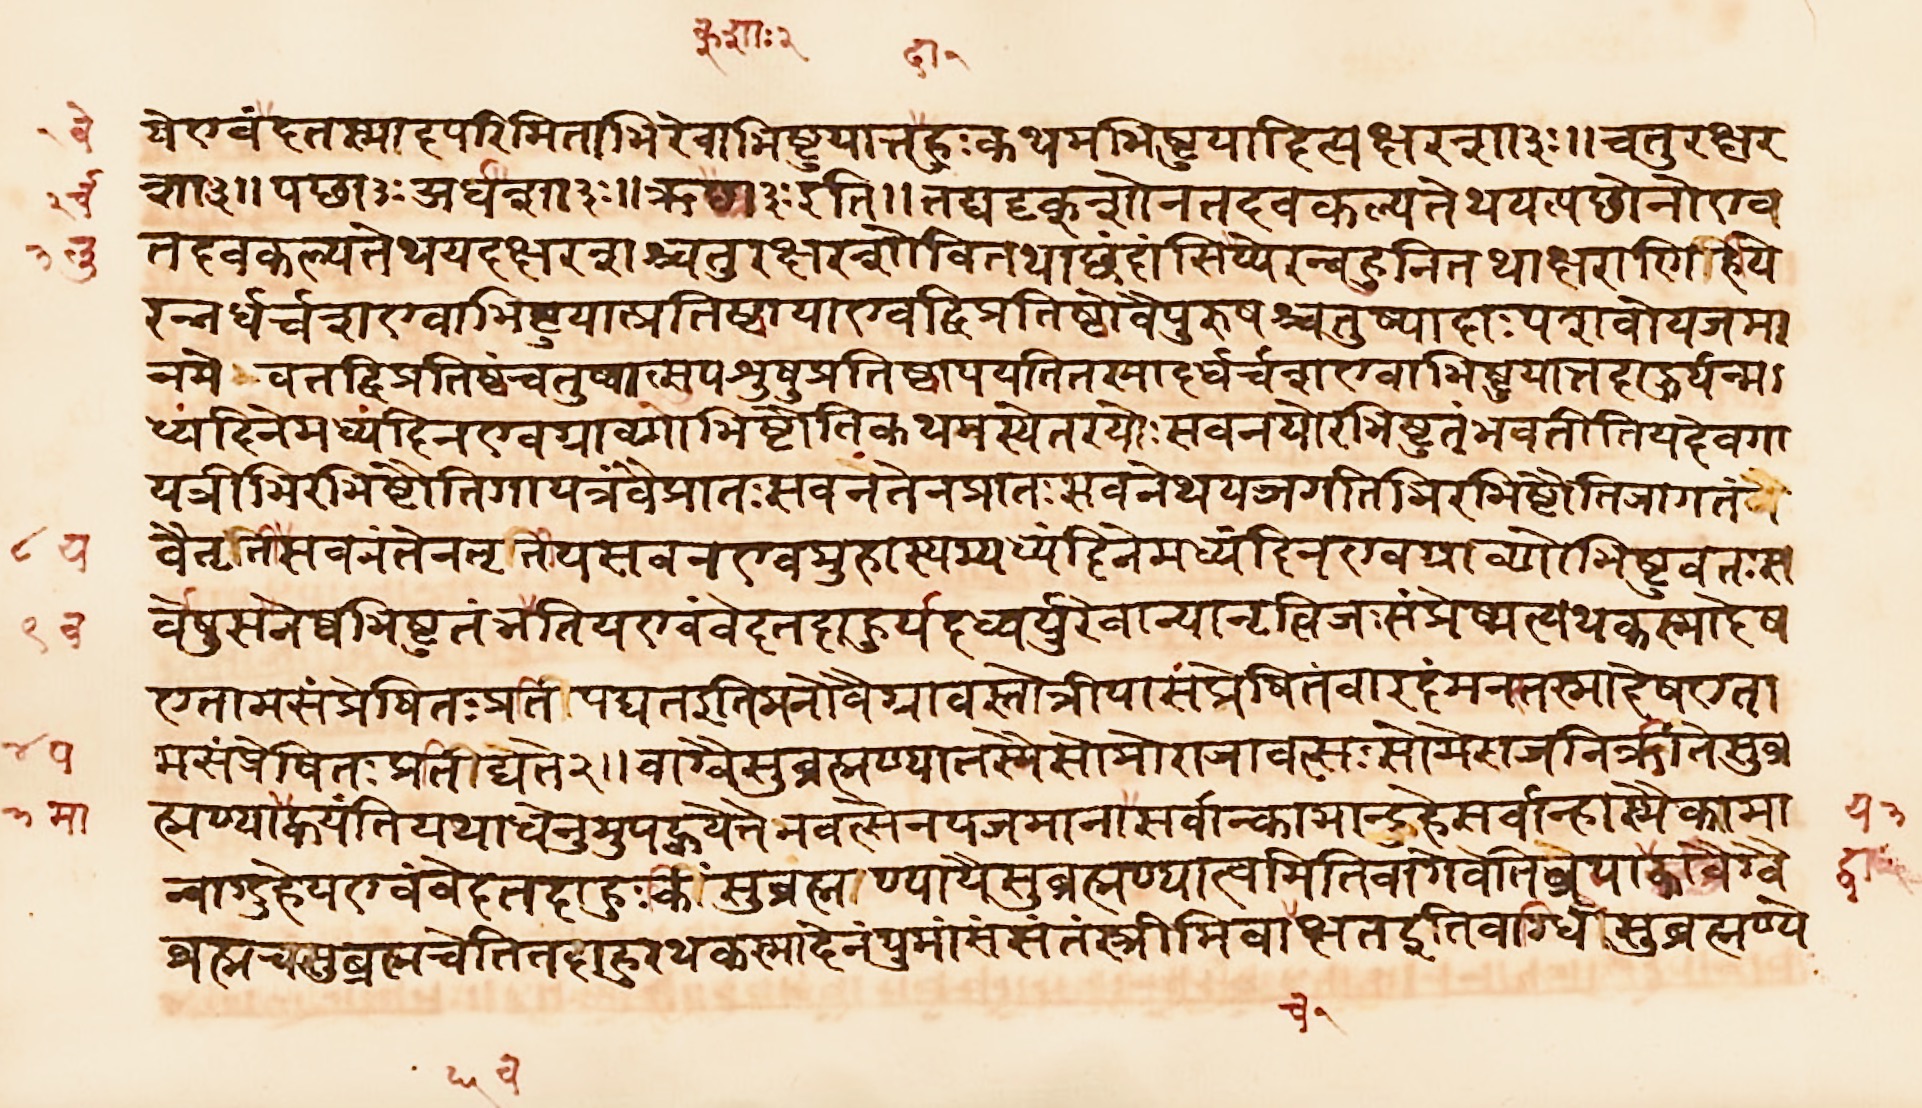 क्शाः२ दा॰
वे येएवंदतस्मादपरिमिताभिरेवाभिष्टुयात्तदाहुःकथमभिष्टुयादित्यक्षरशा३ः॥चतुरक्षर
२र्च शा३॥पछा३ःअर्धशा३ः॥ऋछा३ःइति॥तद्यदृक्शोनतदवकल्पतेथयत्पछोनोएव
३तु तदवकल्पतेथयदक्षरशश्चतुरक्षरशोवितथाछंदांसिप्येरन्बहुनितथाक्षराणिहीये
रन्नर्धर्चशएवाभिष्टुयात्प्रतिष्ठायाएवद्विप्रतिष्ठोवैपुरुषश्चतुष्पादाःपशवोयजमा
नमे वतद्विप्रतिष्ठंचतुष्पात्सुपशुषुप्रतिष्ठापयतितस्मादर्धर्चशएवाभिष्टुयात्तदाहुर्यन्म
ध्यंदिनेमध्यंदिनएवग्राव्णोभिष्टौतिकथमस्येतरयोःसवनयोरभिष्टुतंभवतीतियदेवगा
यत्रीभिरभिष्टौतिगायत्रंवैप्रातःसवनंतेनप्रातःसवनेथयज्जगतिभिरभिष्टौतिजागतं
८ य वैतृतिसवनंतेनतृतीयसवनएवमुहास्यमध्यंदिनेमध्यंदिनएवग्राव्णोभिष्टुवतःस
९ व र्वेषुसनेष्वभिष्टुतंभतियएवंवेदतदाहुर्यदध्वर्युरेवान्यानृत्विजःसंप्रेष्यत्यथकस्मादेष
एतामसंप्रेषितःप्रतिपद्यतइतिमनोवैग्रावस्तोत्रीयासंप्रेषितंवारदंमनतस्मादेषएता
४ प मसंप्रेषितःप्रतीद्यते२॥वाग्वैसुब्रह्मण्यातस्यैसोमोराजावत्सःसोमेराजनिक्रीतेसुब्र
३ मा ह्मण्याह्वयंतियथाधेनुमुपह्वयेत्तेभवत्सेनयजमानासर्वान्कामान्दुहेसर्वान्हास्मैकामा य३
न्वाग्दुहेयएवंवेदतदाहुःकिंसुब्रह्मण्यायैसुब्रह्मण्यात्वमितिवागेवेतिब्रूयाद्वाग्वै द्वा
ब्रह्मचसुब्रह्मचेतितदाहुरथकस्मादेनंपुमांसंसंतंस्त्रीमिवाक्षतइतिवाग्घिसुब्रह्मण्ये
चे॰
५ वे